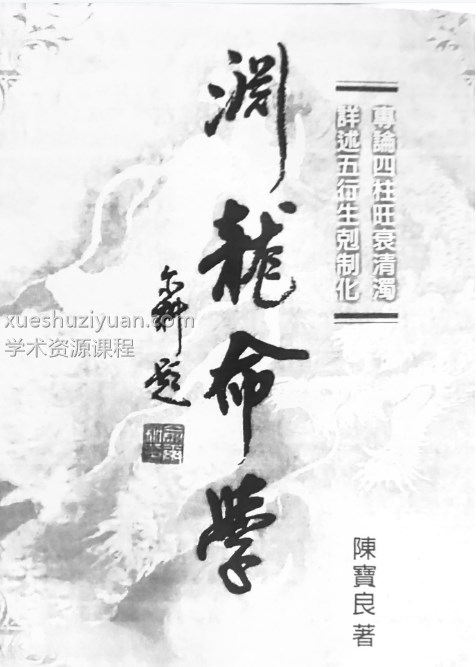 專論四柱旺衰清濁
詳述五行生剋制化
淵龍命學
尔科題
xueshuziyuan.com
学术资源课程
陳寶良 著